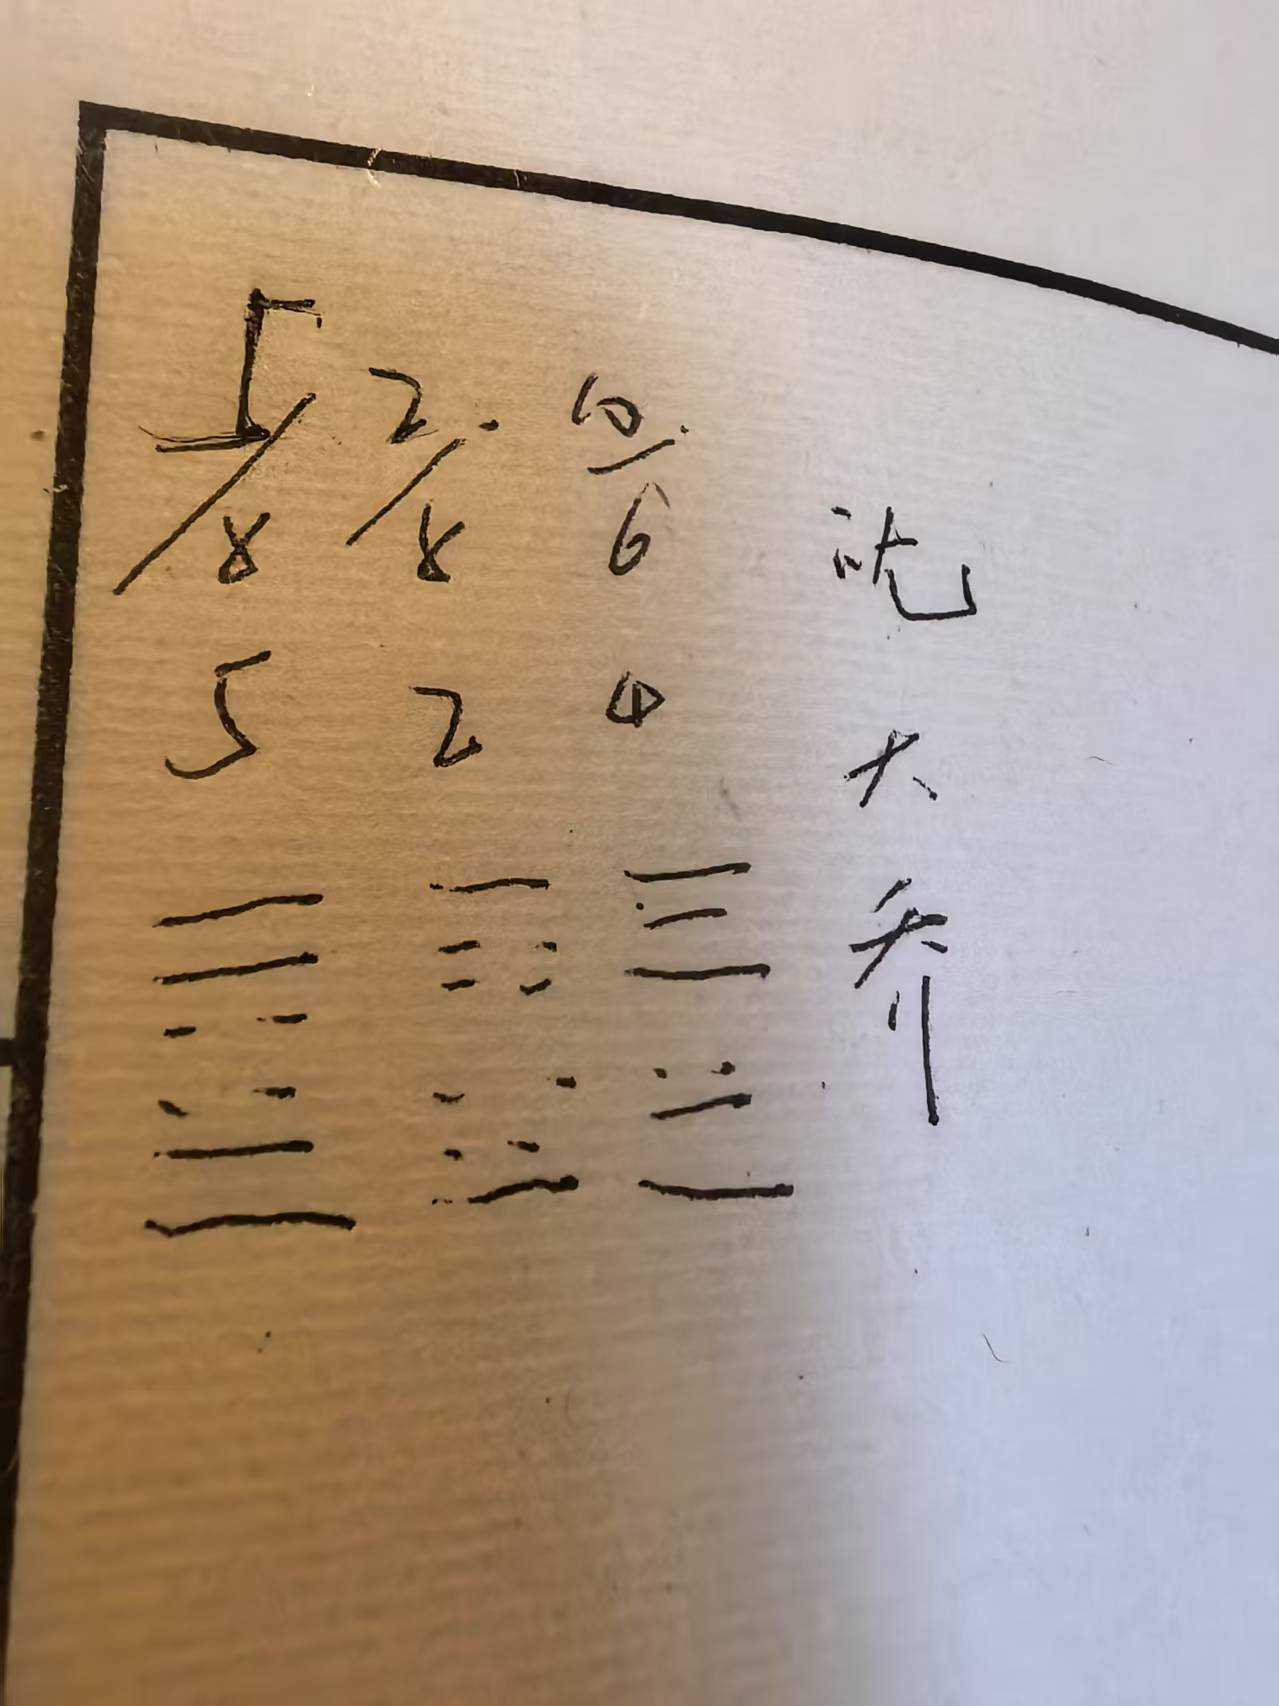 5/8 2/8 10/6
5 2 4
沈
大
乔